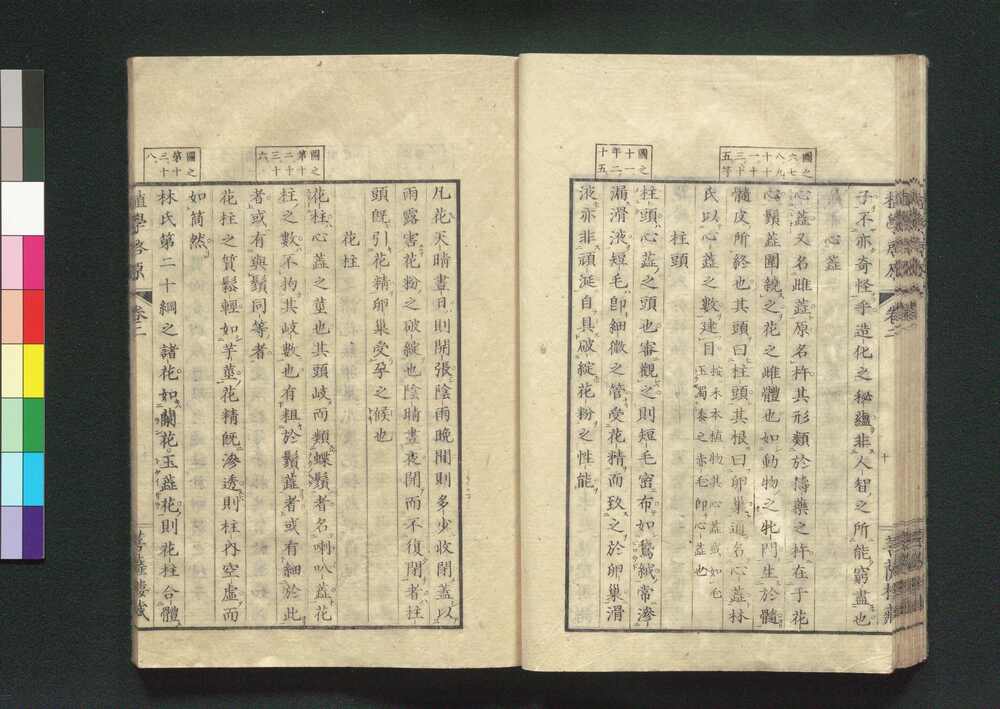 圖之六七八九十十一十二十三五等
子不亦奇怪乎造化之秘蘊非人智之所能窮盡也
心蕋
心蕋又名雌蕋原名杵其形類於擣藥之杵在于花
心鬚蕋圍繞之花之雌體也如動物之牝門生於髓
髓皮所終也其頭曰柱頭其根曰卵巢通名心蕋林
氏以心蕋之數建目按木本植物其心蕋或如毛
玉蜀黍之赤毛卽心蕋也
柱頭
圖之十一年二十五
柱頭心蕋之頭也審觀之則短毛密布如鵞絨常滲
漏滑液短毛卽細微之管受花精而致之於卵巢滑
液亦非頑涎自具破綻花粉之性能
凡花天晴晝日則開張陰雨晚間則多少收閉蓋以
雨露害花粉之破綻也陰晴晝夜開而不復閉者柱
頭旣引花精卵巢受孕之候也
花柱
圖之第二三十十六
花柱心蕋之莖也其頭岐而類蝶鬚者名喇叭蕋花
柱之數不拘其岐數也有粗於鬚蕋者或有細於此
者或有與鬚同等者
花柱之質鬆輕如芋莖花精旣滲透則柱內空虛而
如筒然
圖之第十三十八
林氏第二十綱之諸花如蘭花玉蕋花則花柱合體
植學啓原
卷二
菩薩樓藏